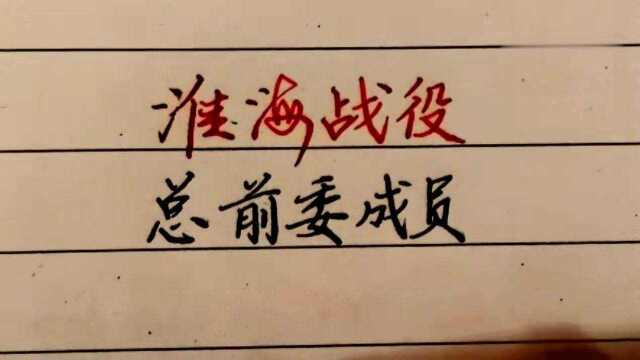 淮海战役
总前委成员